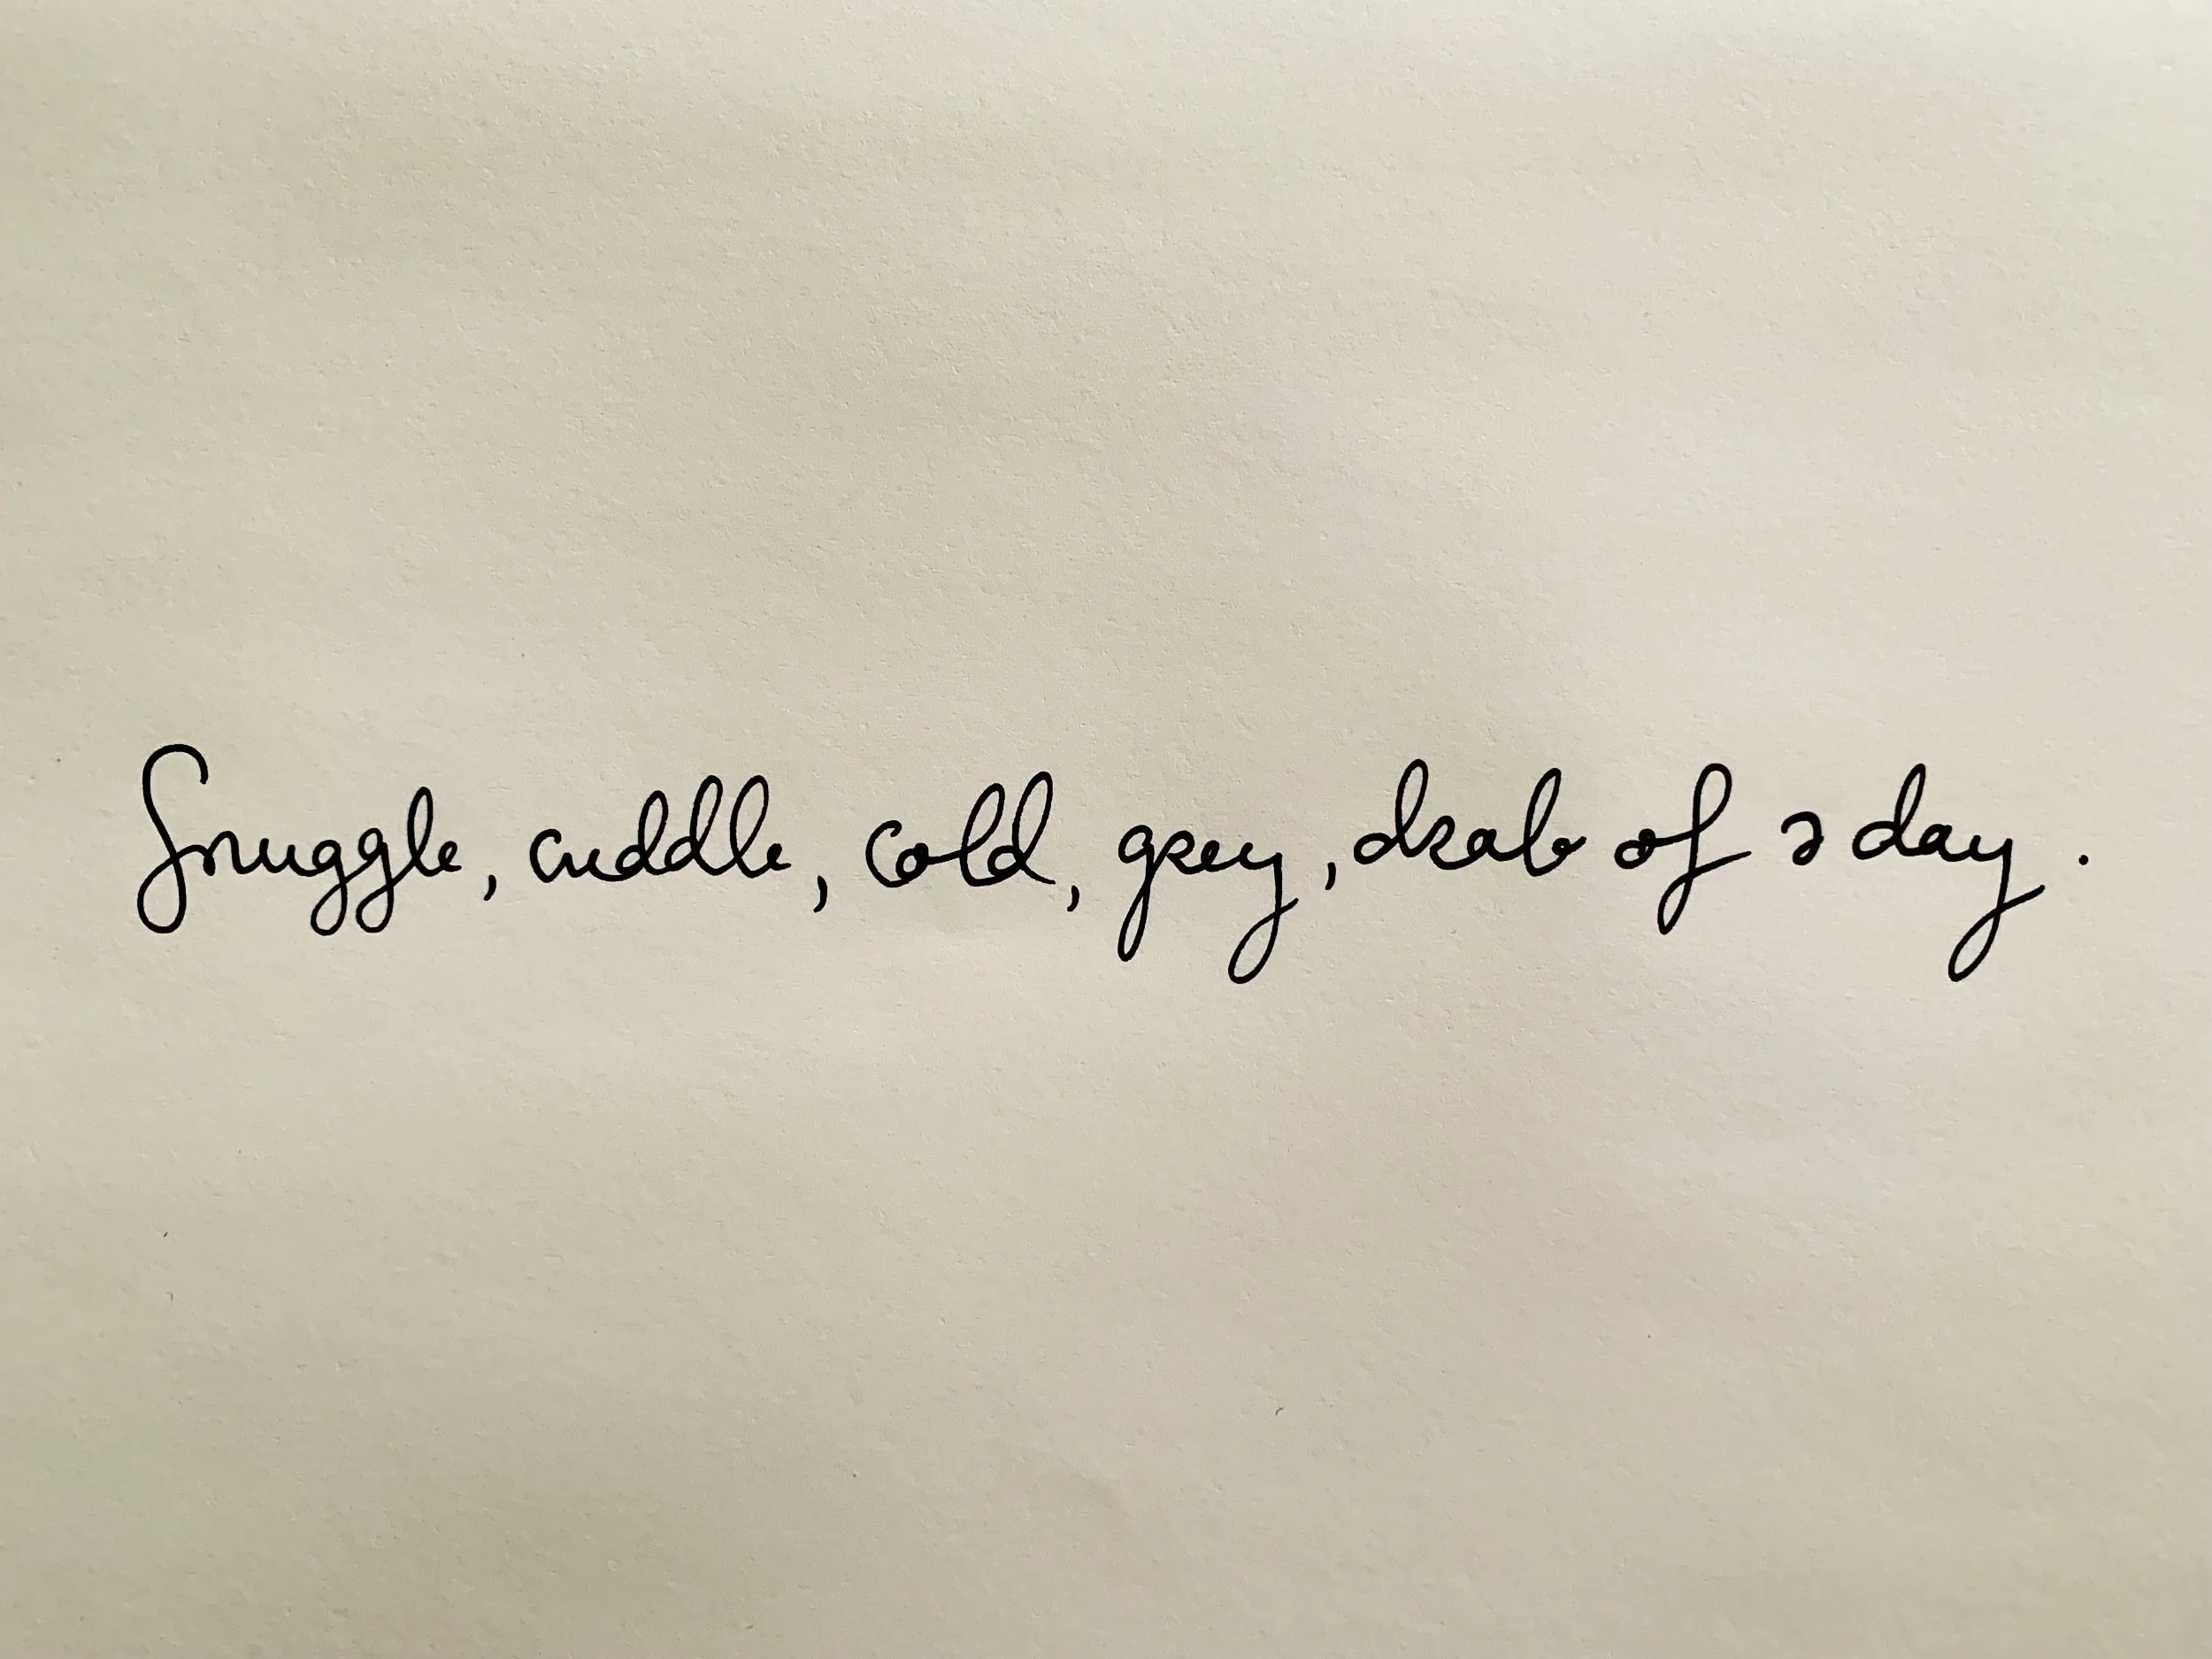 Snuggle, cuddle, cold, grey, drab of a day.